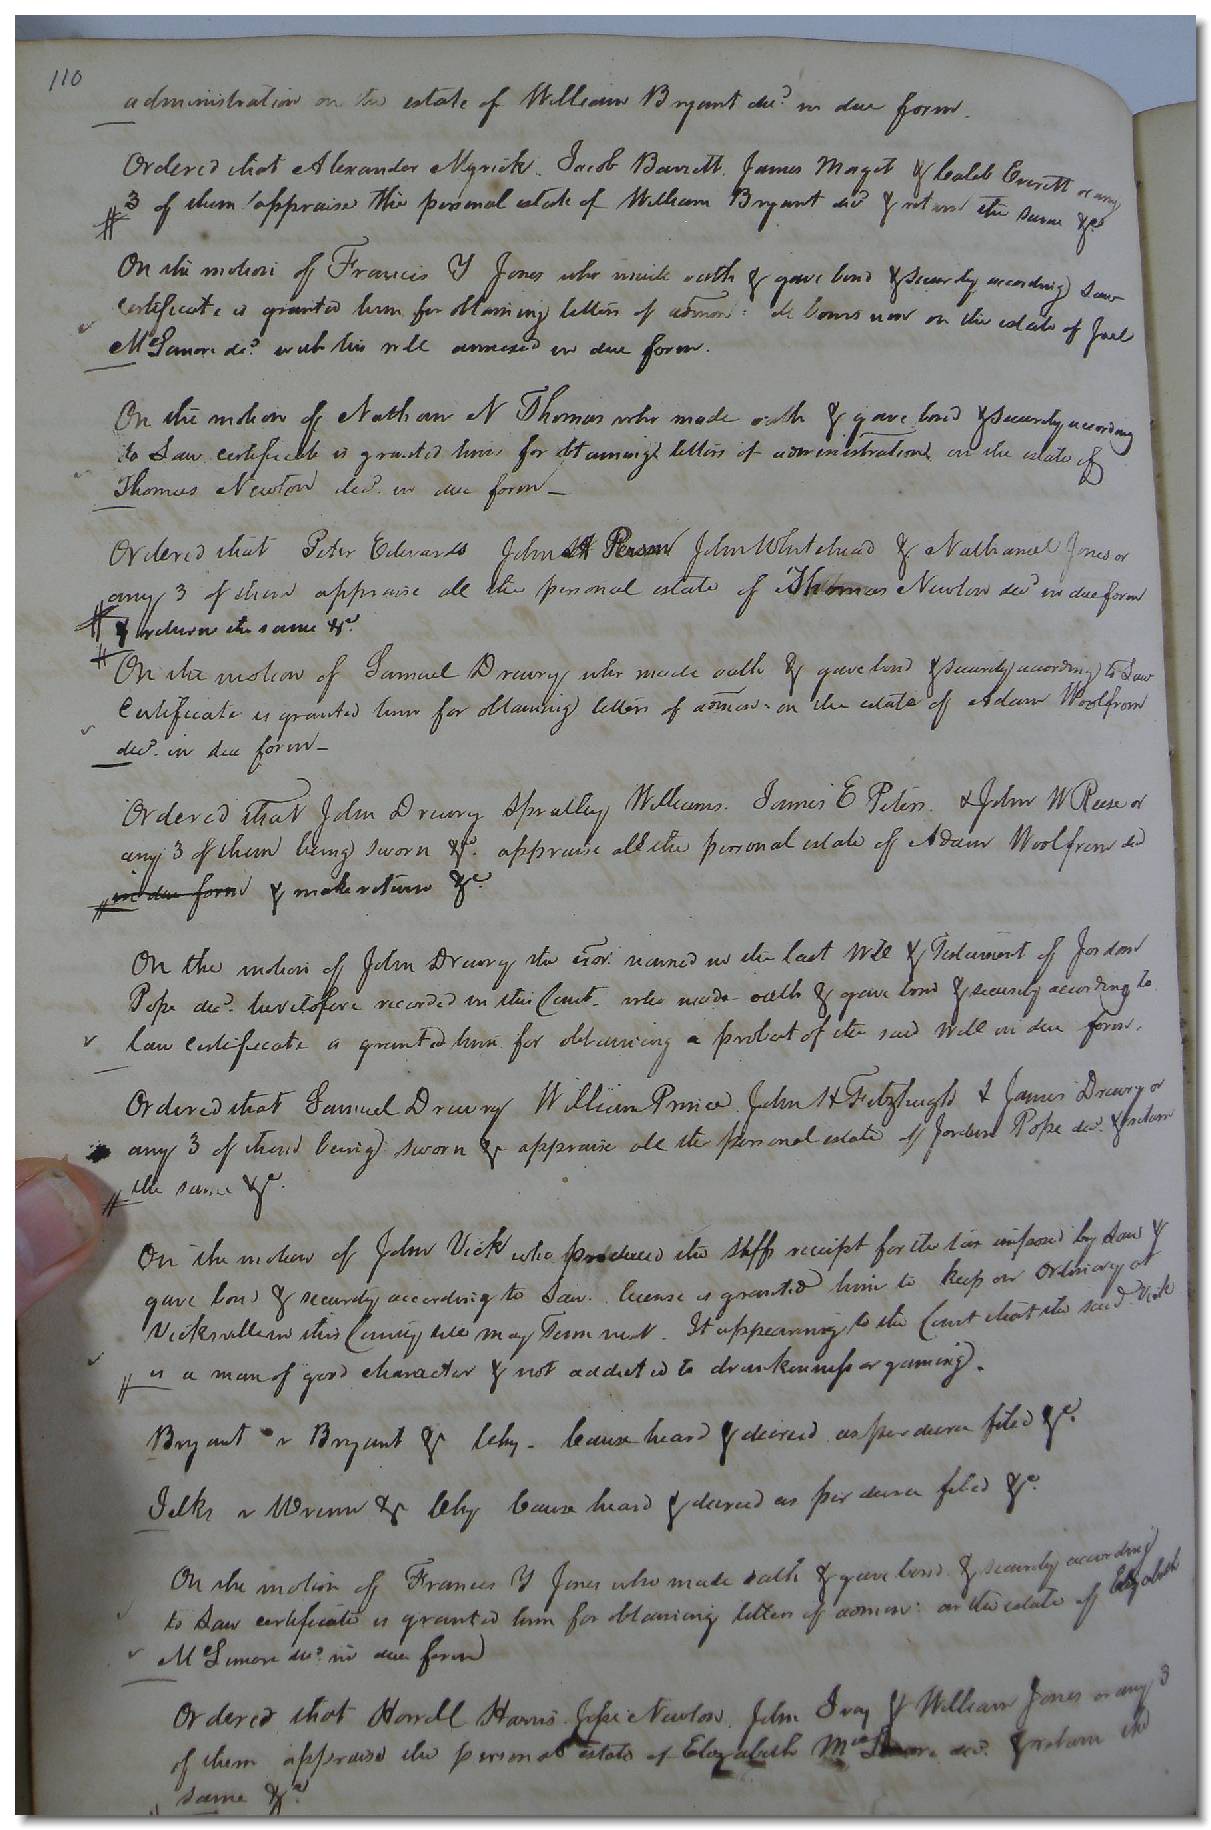 110
administration on the estate of William Bryant decd in due form.
Ordered that Alexander Myrick. Jacob Barrett. James Maget & Caleb Everett or any
3 of them appraise the personal estate of William Bryant decd & return the same &c.
On the motion of Francis Y Jones who made oath & gave bond & security according Law
certificate is granted him for obtaining letters of admon: de bonis non on the estate of Joel
McLemore decd with his will annexed in due form.
On the motion of Nathan N Thomas who made oath & gave bond & security according
to Law certificate is granted him for obtaining letters of administration on the estate of
Thomas Newton decd. in due form
Ordered that Peter Edwards John Person John Whitehead & Nathaniel Jones or
any 3 of them appraise all the personal estate of Thomas Newton decd in due form
& return the same &c.
On the motion of Samuel Drewry who made oath & gave bond & security according to Law
Certificate is granted him for obtaining letters of admon. on the estate of Adam Woolfrom
decd. in due form
Ordered that John Drewry Spratley Williams. James E Peters. & John W Reese or
any 3 of them being sworn &c. appraise all the personal estate of Adam Woolfrom decd
in due form & make return &c.
On the motion of John Drewry the exor. named in the last Will & Testament of Jordon
Pope decd. heretofore recorded in this Court. who made oath & gave bond & security according to
Law certificate is granted him for obtaining a probat of the said Will in due form.
Ordered that Samuel Drewry William Prince. John H Fitzhugh & James Drewry or
any 3 of them being sworn & appraise all the personal estate of Jorden Pope decd. & return
the same &c.
On the motion of John Vick who produced the Shff receipt for the tax imposed by Law &
gave bond & security according to Law. license is granted him to keep an Ordinary at
Vicksville in this County till may Term next. It appearing to the Court that the said Vick
is a man of good character & not addicted to drunkenness or gaming.
Bryant v Bryant & Chy. Cause heard & decreed as per decree filed &c.
Jelks v Wrenn & Chy Cause heard & decreed as per decree filed &c.
On the motion of Francis Y Jones who made oath & gave bond & security according
to Law certificate is granted him for obtaining letters of admon: on the estate of Elizabeth
McLemore decd. in due form
Ordered that Howell Harris. Jesse Newton. John Ivey & William Jones or any 3
of them appraise the personal estate of Elizabeth decd. & return the
same &c.